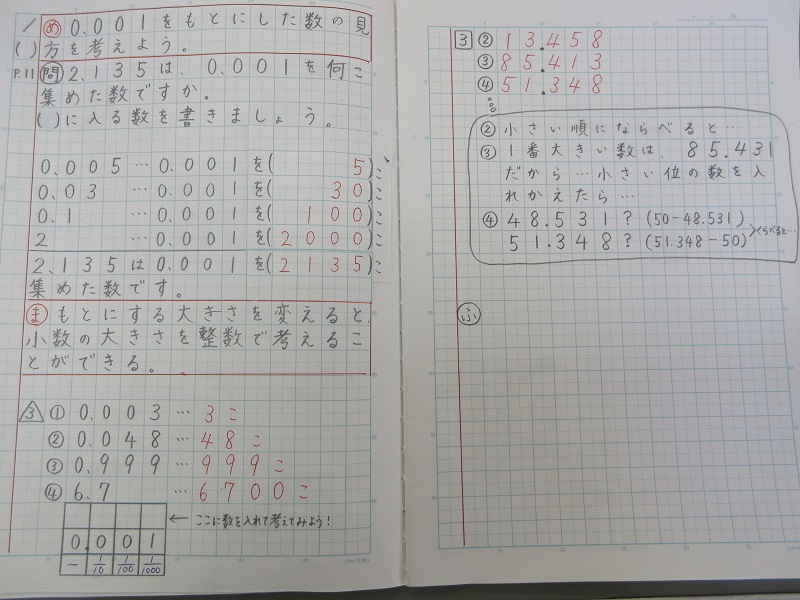 ／ ㋱ 0.001をもとにした数の見
( ) 方を考えよう。
P.11 問 2.135は、0.001を何こ
集めた数ですか。
( )に入る数を書きましょう。
0.005…0.001を( 5)こ
0.03 …0.001を( 30)こ
0.1 …0.001を( 100)こ
2 …0.001を(2000)こ
2.135は0.001を(2135)こ
集めた数です。
ま もとにする大きさを変えると、
小数の大きさを整数で考えるこ
とができる。
3 ① 0.003 … 3こ
② 0.048 … 48こ
③ 0.999 … 999こ
④ 6.7 … 6700こ
← ここに数を入れて考えてみよう!
0.001
一 1/10 1/100 1/1000
3 ② 13.458
③ 85.413
④ 51.348
② 小さい順にならべると…
③ 1番大きい数は、85.431
だから…小さい位の数を入
れかえたら…
④ 48.531? (50-48.531)
51.348? (51.348-50) 〉くらべると…
ふ